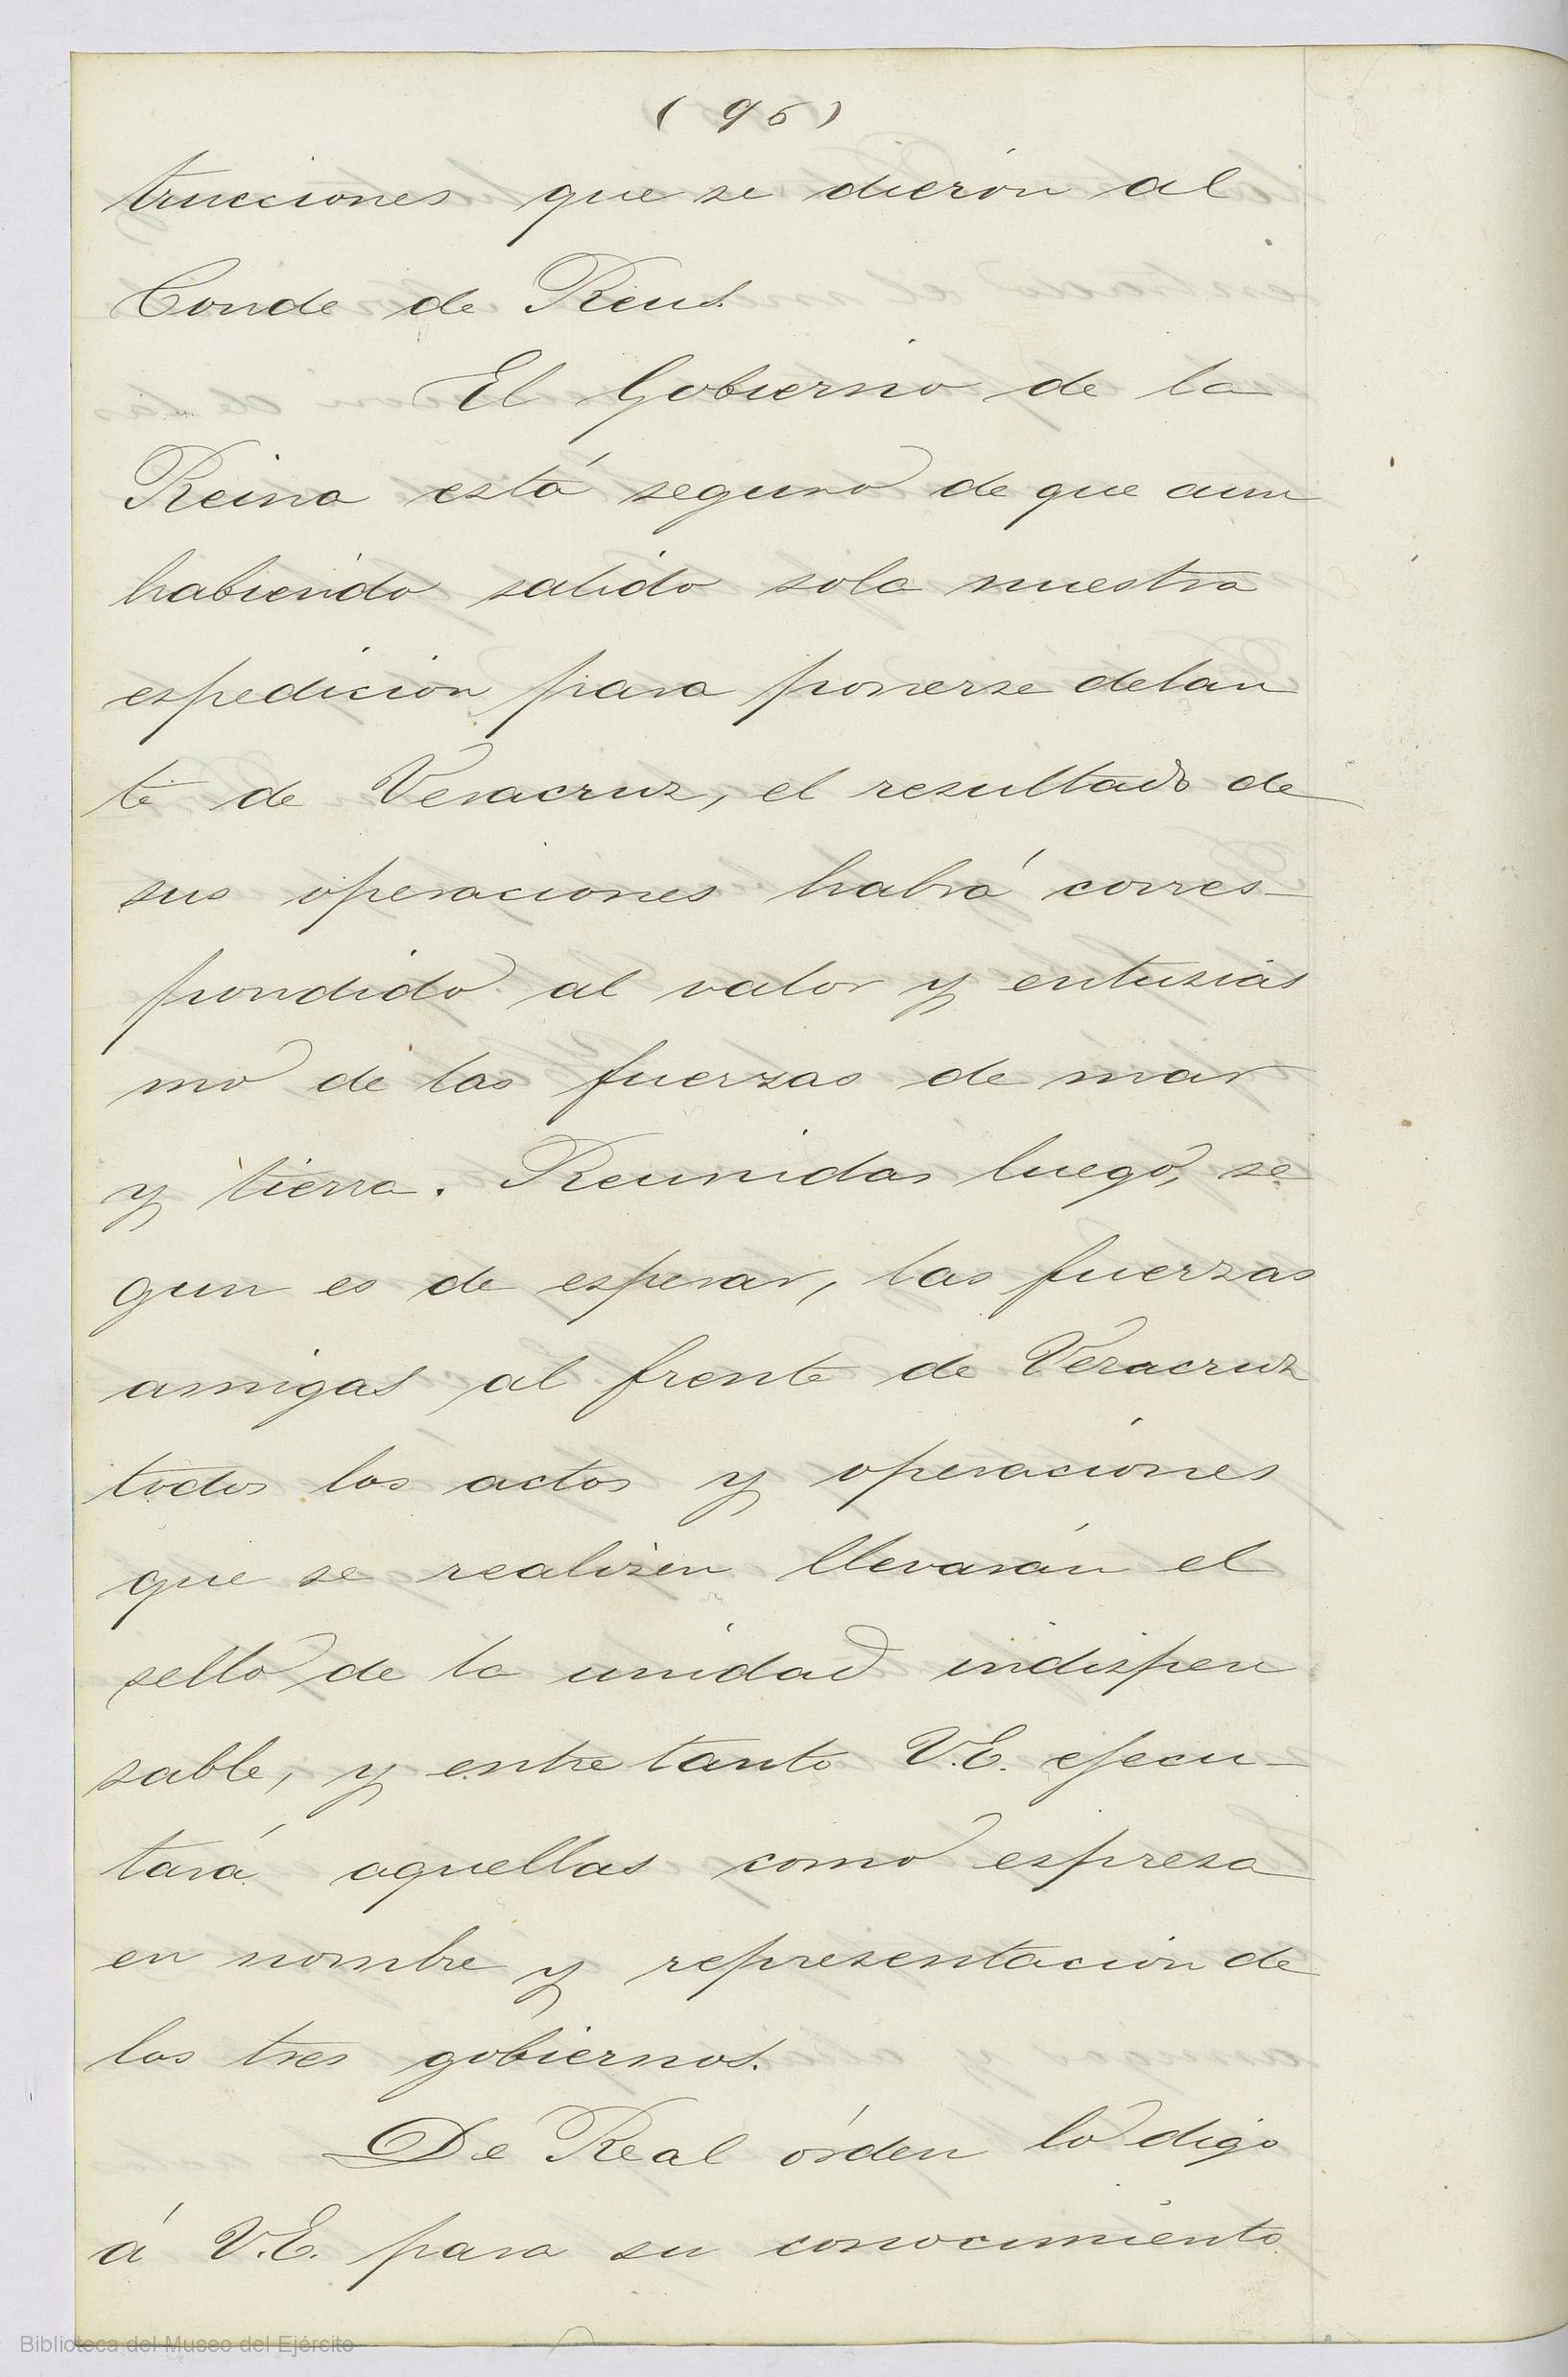 ( 96 )
trucciones que se dieron al
Conde de Reus.
El Gobierno de la
Reina está seguro de que aun
habiendo salido sola nuestra
espedicion para ponerse delan
te de Veracruz, el resultado de
sus operaciones habrá corres-
pondido al valor y entusias
mo de las fuerzas de mar
y tierra. Reunidas luego, se
gun es de esperar, las fuerzas
amigas al frente de Veracruz
todos los actos y operaciones
que se realizen llevarán el
sello de la unidad indispen
sable, y entre tanto V.E. ejecu-
tará aquellas como espresa
en nombre y representacion de
los tres gobiernos.
De Real órden lo digo
á V.E. para su conocimiento
Biblioteca del Museo del Ejército